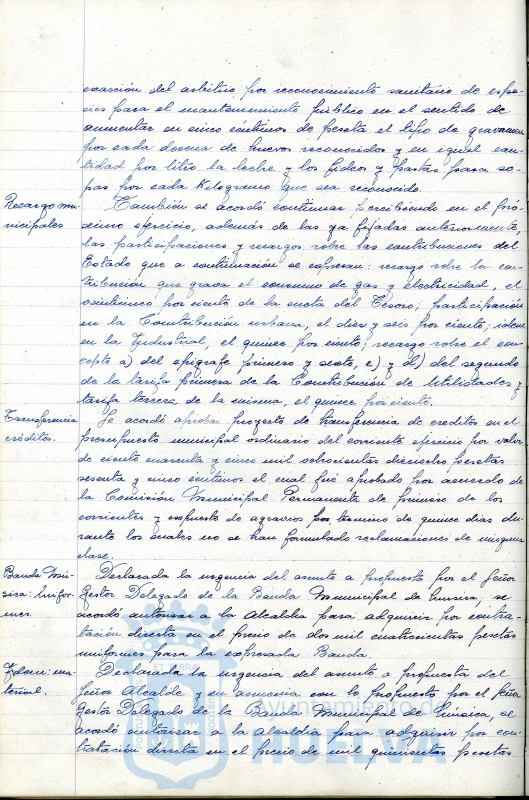 exacción del arbitrio por reconocimiento sanitario de espe-
cies para el mantenimiento público en el sentido de
aumentar en cinco céntimos de peseta el tipo de gravamen
por cada docena de huevos reconocidos y en igual can-
tidad por litro la leche y los fideos y pastas para so-
pas por cada Kilogramo que sea reconocido.
Recargo mu-
nicipales
También se acordó continuar percibiendo en el pró-
ximo ejercicio, además de las ya fijadas anteriormente,
las participaciones y recargos sobre las contribuciones del
Estado que a continuación se expresan: recargo sobre la con-
tribución que grava el consumo de gas y electricidad, el
veinticinco por ciento de la cuota del Tesoro; participación
en la Contribución urbana, el diez y seis por ciento; idem
en la Industrial, el quince por ciento; recargo sobre el con-
cepto a) del epígrafe primero y sexto, c) y d) del segundo
de la tarifa primera de la Contribución de Utilidades y
tarifa tercera de la misma, el quince por ciento.
Transferencia
créditos.
Se acordó aprobar proyecto de transferencia de creditos en el
presupuesto municipal ordinario del corriente ejercicio por valor
de ciento cuarenta y cinco mil ochocientas dieciocho pesetas
sesenta y cinco centimos el cual fué aprobado por acuerdo de
la Comisión Municipal Permanente de primero de los
corrientes y expuesto de agravios por termino de quince dias du-
rante los cuales no se han formulado reclamaciones de ninguna
clase.
Banda Mú-
sica: unifor-
mes.
Declarada la urgencia del asunto a propuesta por el Señor
Gestor Delegado de la Banda Municipal de musica, se
acordó autorizar a la Alcaldia para adquirir por contra-
tación directa en el precio de dos mil cuatrocientas pesetas
uniformes para la expresada Banda.
Idem: ma-
terial.
Declarada la urgencia del asunto a propuesta del
Señor Alcalde y en armonia con lo propuesto por el Señor
Gestor Delegado de la Banda Municipal de Música, se
acordó autorizar a la Alcaldia para adquirir por con-
tratación directa en el precio de mil quinientas pesetas
Ayuntamiento de